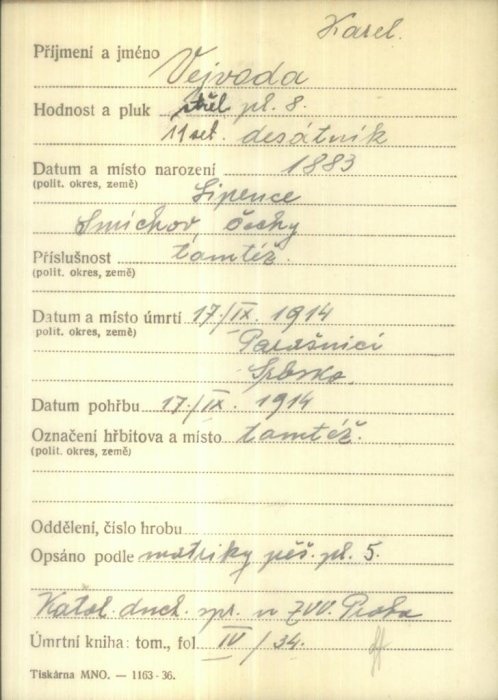 Karel.
Příjmení a jméno Vejvoda
Hodnost a pluk střel pl. 8.
11 set. desátník
Datum a místo narození 1883
(polit. okres, země)
Lipence
Smíchov, Čechy
Příslušnost tamtéž.
(polit. okres, země)
Datum a místo úmrtí 17./IX. 1914
polit. okres, země)
Parašnicí
Srbsko.
Datum pohřbu 17./IX. 1914
Označení hřbitova a místo tamtéž.
(polit. okres, země)
Oddělení, číslo hrobu
Opsáno podle matriky pěš. pl. 5.
Katol. duch. spr. u ZVV. Praha
Úmrtní kniha: tom., fol. IV/34.
Tiskárna MNO. — 1163-36.